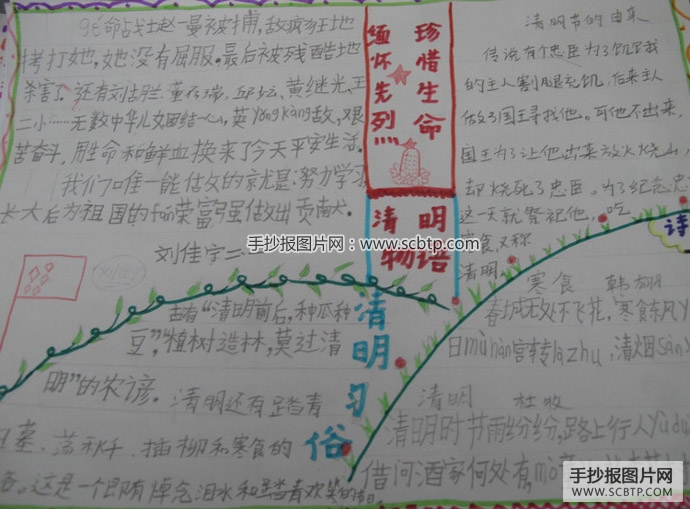 命占戈士赵一曼被捕,敌疯狂地
拷打她,她没有屈服。最后被残酷地
杀害了。还有刘古月兰、董石瑞、邱坛、黄继光、王
二小……无数中华儿女团结一心,英yǒngkàng敌,艰
苦奋斗,用生命和鲜血换来了今天平安生活。
我们唯一能做的就是:努力学习
长大后为祖国的fán荣富强做出贡献。
刘佳宁二
缅怀先烈
珍惜生命
清明
物语
清明节的由来
传说有个忠臣为了饥饿
的主人割腿充饥,后来主人
做了国王寻找他。可他不出来,
国王为了让他出来放火烧山,
却烧死了忠臣。为了纪念忠
这一天就祭祀他,吃
寒食又称
清明
诗
手抄报图片网:www.scbtp.com
古有“清明前后,种瓜种
豆”,“植树造林,莫过清
明”的农谚。清明还有踏青
墓、荡秋千、插柳和寒食的
。这是一个即有悼念泪水和踏青欢笑的节日。
清明习俗
寒食 韩翃
春城无处不飞花,寒食东风
日mù hàn宫转là zhú,清烟sàn
清明 杜牧
清明时节雨纷纷,路上行人yù du
借问酒家何处有,mù
手抄报图片网
WWW.SCBTP.COM